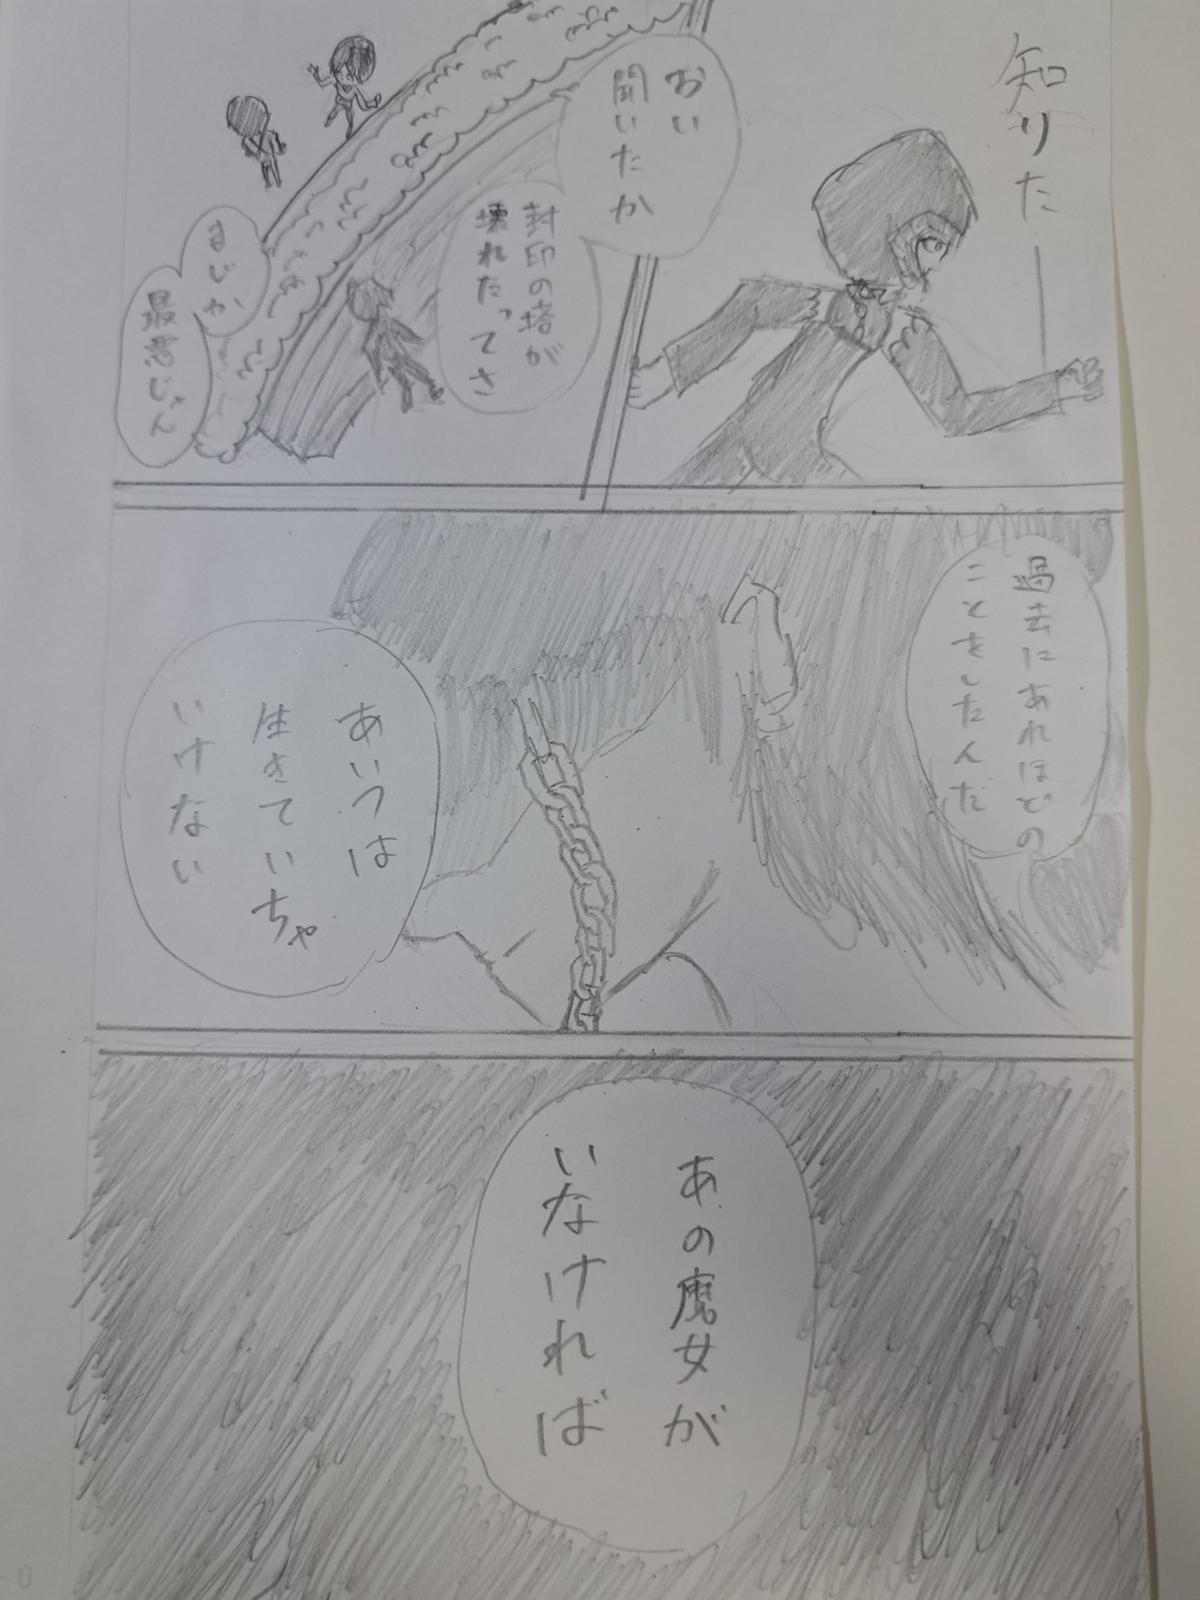 知りた―
おい
聞いたか
封印の塔が
壊れたってさ
まじか
最悪じゃん
過去にあれほどの
ことをしたんだ
あいつは
生きていちゃ
いけない
あの魔女が
いなければ